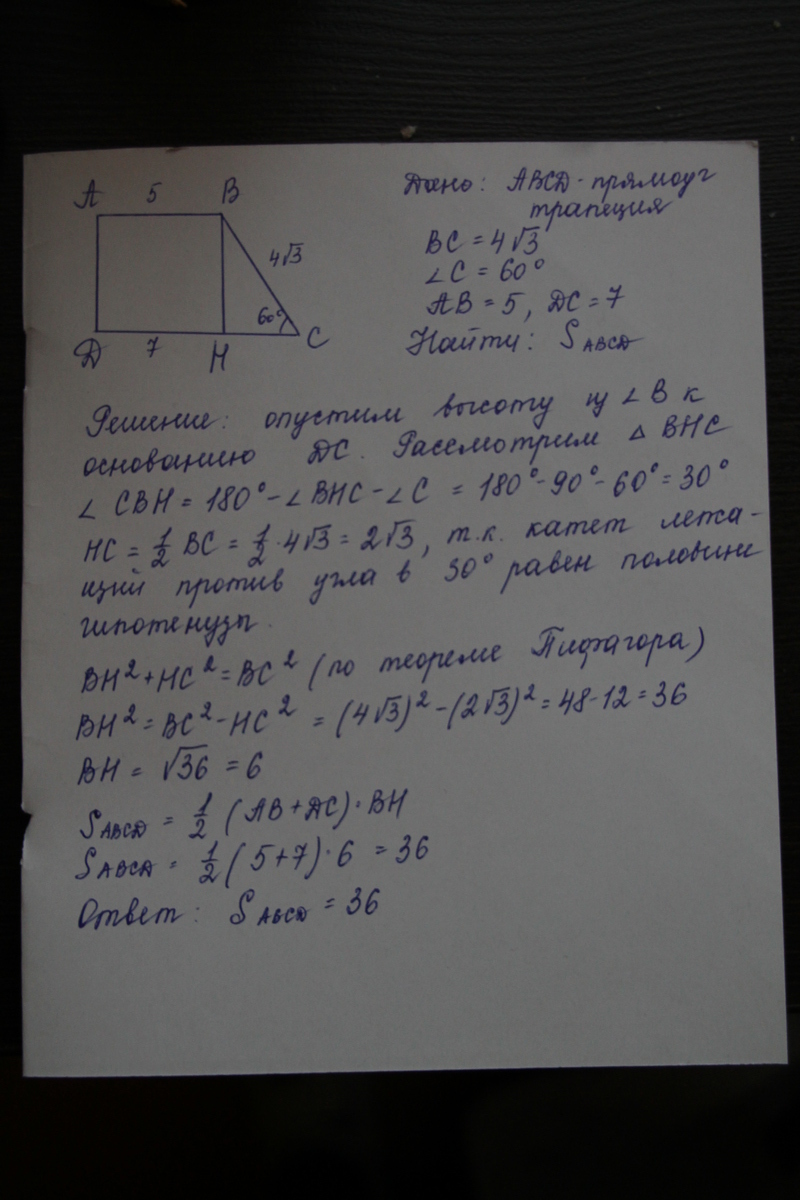 A 5 B
4√3
60°
D 7 H C
Дано: ABCD - прямоуг
трапеция
BC = 4√3
∠C = 60°
AB = 5, DC = 7
Найти: S ABCD
Решение: опустим высоту из ∠B к
основанию DC. Рассмотрим △ BHC
∠ CBH = 180° - ∠BHC - ∠C = 180° - 90° - 60° = 30°
HC = 1/2 BC = 1/2 · 4√3 = 2√3, т.к. катет лежа-
щий против угла в 30° равен половине
гипотенузы.
BH² + HC² = BC² (по теореме Пифагора)
BH² = BC² - HC² = (4√3)² - (2√3)² = 48 - 12 = 36
BH = √36 = 6
S ABCD = 1/2 (AB + DC) · BH
S ABCD = 1/2 (5 + 7) · 6 = 36
Ответ: S ABCD = 36